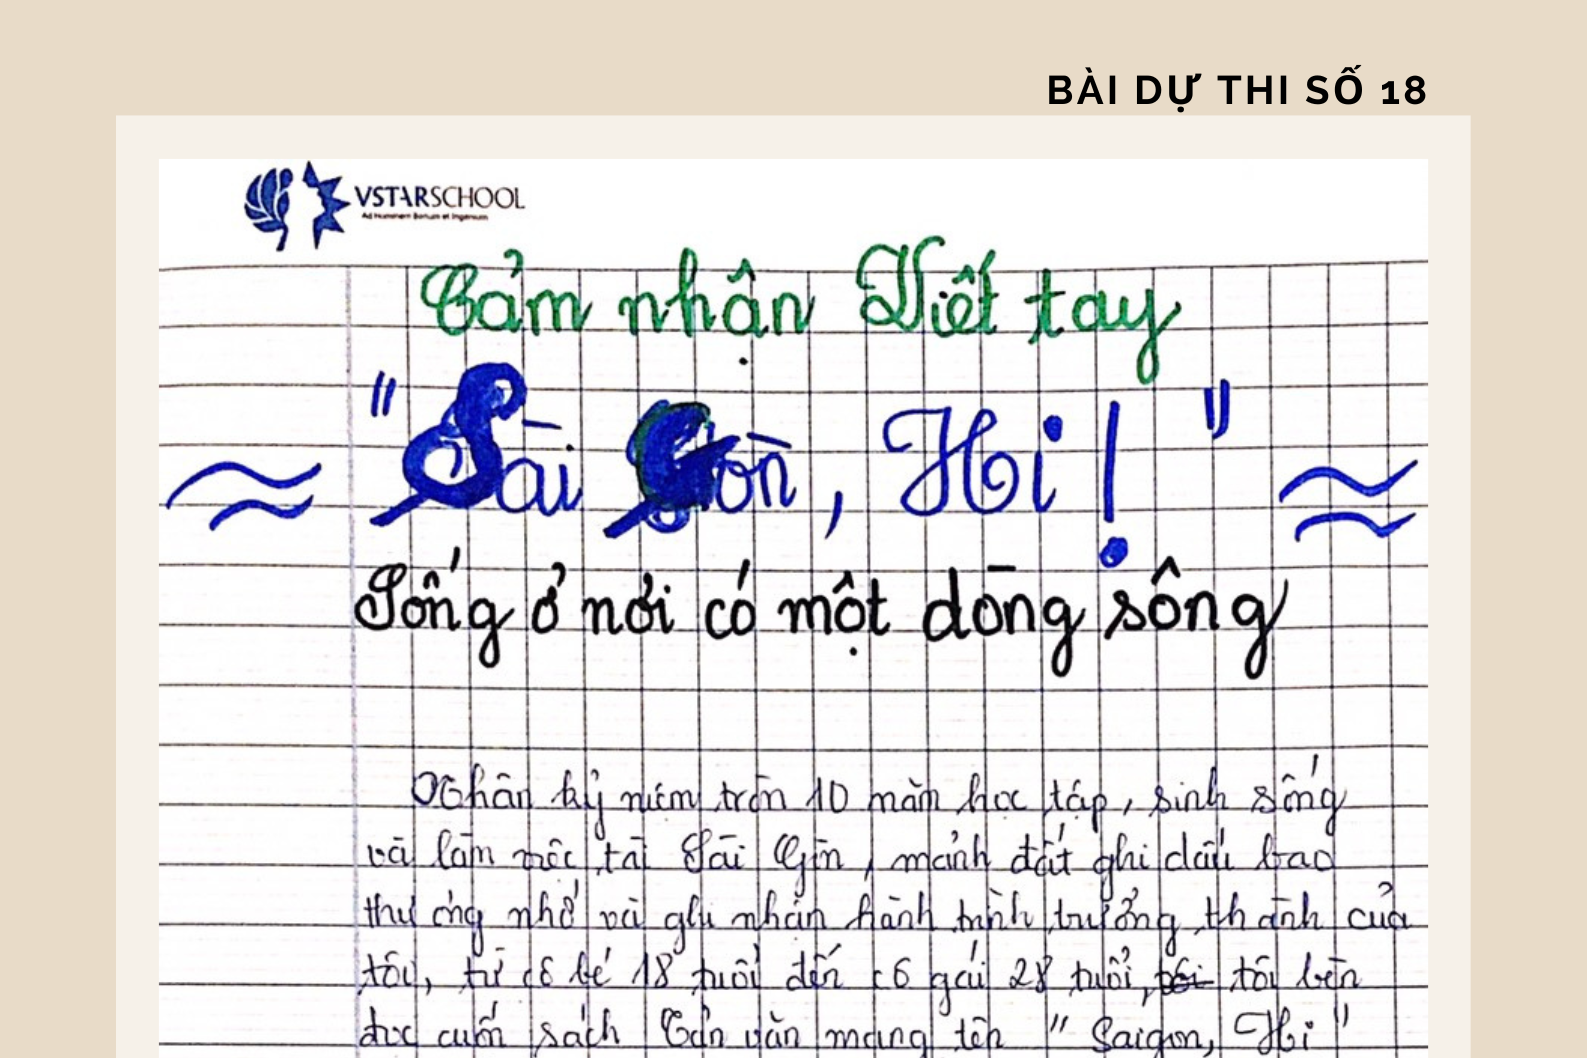 BÀI DỰ THI SỐ 18
VSTARSCHOOL
Ad Hominem Bonum et Ingenium
Cảm nhận Viết tay
"Sài Gòn, Hi!"
Sống ở nơi có một dòng sông
Nhân kỷ niệm tròn 10 năm học tập, sinh sống
và làm việc tại Sài Gòn, mảnh đất ghi dấu bao
thương nhớ và ghi nhận hành trình trưởng thành của
tôi, từ cô bé 18 tuổi đến cô gái 28 tuổi, tôi tôi bèn
đọc cuốn sách Tản văn mang tên "Saigon, Hi"